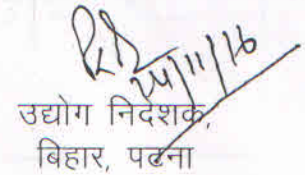 24/11/16
उद्योग निदेशक,
बिहार, पटना